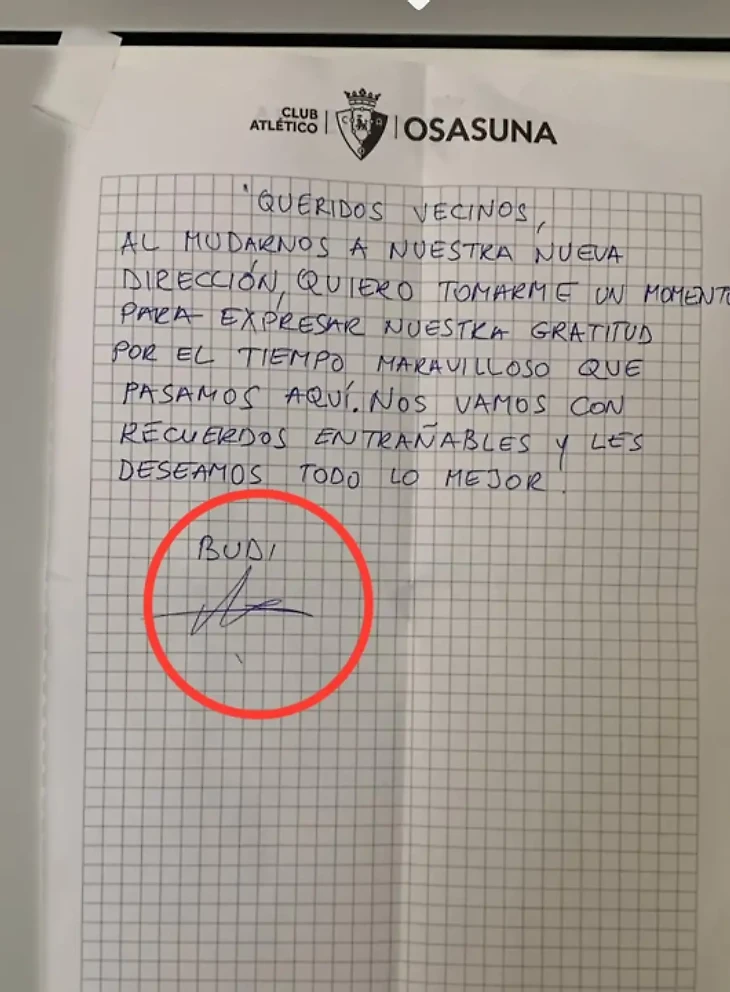 CLUB
ATLÉTICO
OSASUNA
"QUERIDOS VECINOS,
AL MUDARNOS A NUESTRA NUEVA
DIRECCIÓN, QUIERO TOMARME UN MOMENTO
PARA EXPRESAR NUESTRA GRATITUD
POR EL TIEMPO MARAVILLOSO QUE
PASAMOS AQUÍ. NOS VAMOS CON
RECUERDOS ENTRAÑABLES Y LES
DESEAMOS TODO LO MEJOR!
BUDI